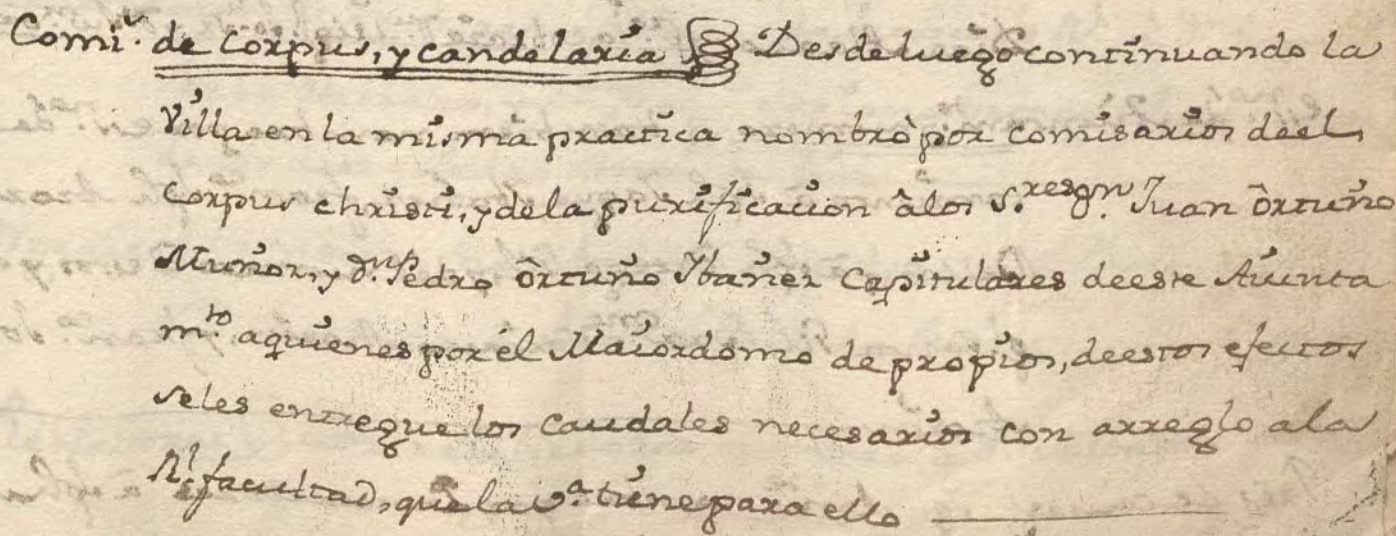 Comi.^s de Corpus, y candelaria Desde luego continuando la
Villa en la misma practica nombrò por comisarios de el
Corpus christi, y dela purificacion âlos S.^res D.^n Juan Ôrtuño
Muñoz, y D.^n Pedro Ôrtuño Ybañez Capitulares deeste Aiunta
m.^to aquienes por él Maiordomo de propios, deestos efectos
seles entregue los caudales necesarios con arreglo ala
R.^l facultad, que la v.^a tiene para ello